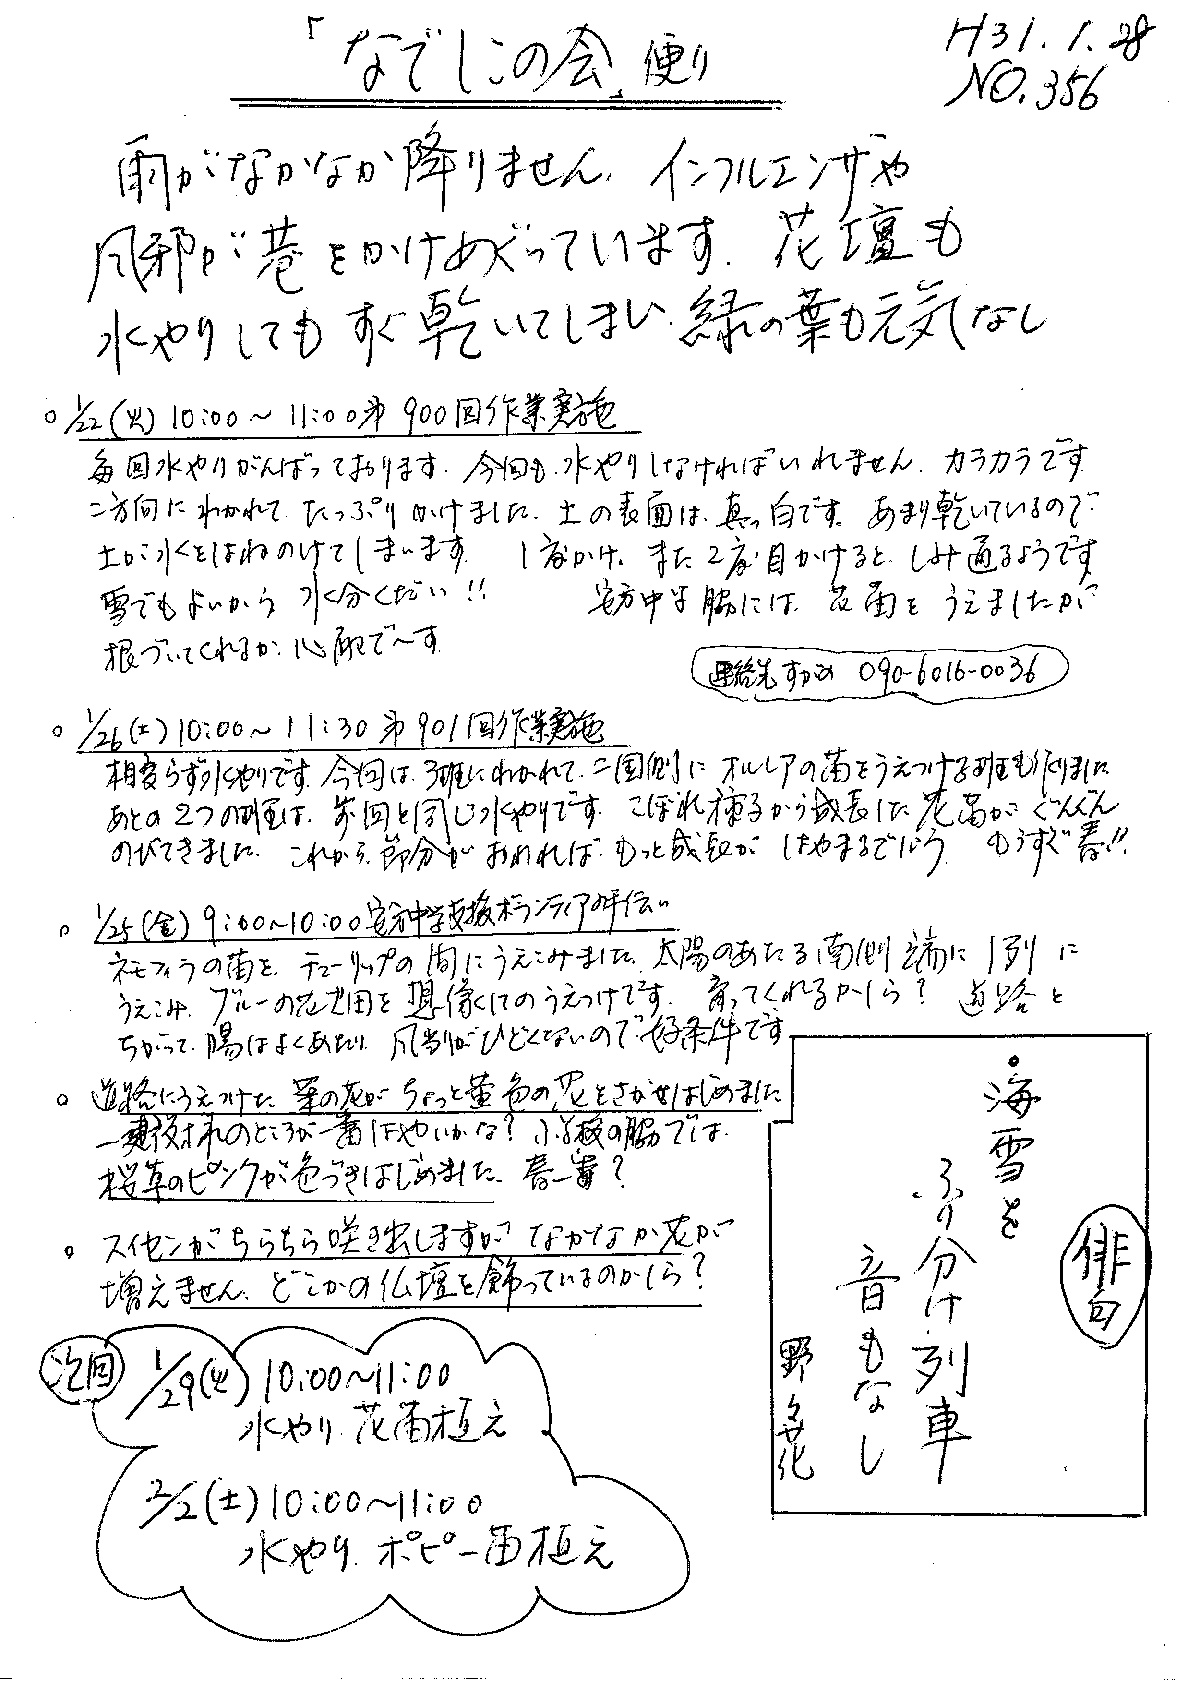 「なでしこの会」便り
H31.1.28
NO.356
雨がなかなか降りません、インフルエンザや
風邪が巷をかけめぐっています。花壇も
水やりしてもすぐ乾いてしまい、緑の葉も元気なし
○ 1/22(火)10:00～11:00 第900回作業実施
毎回水やりがんばっております。今回も、水やりしなければいれません。カラカラです
二方向にわかれて、たっぷりかけました。土の表面は、真っ白です。あまり乾いているので
土が水をはねのけてしまいます。 1度かけ、また2度目かけると、しみ通るようです
雪でもよいから 水分ください!! 安方中学脇には、花苗を うえましたが
根づいてくれるか、心配で～す
連絡先 090-6016-0036
○ 1/26(土)10:00～11:30 第901回作業実施
相変らず水やりです。今回は、3班にわかれて、二国側に オルレアの苗をうえつける班も作りました
あとの2つの班は、前回と同じ水やりです。こぼれ種から成長した花苗がぐんぐん
のびてきました。これから、節分がおわれば、もっと成長が はやまるでしょう もうすぐ春!!
○ 1/25(金)9:00～10:00 安方中学支援ボランティアの手伝い
ネモフィラの苗を、チューリップの間にうえこみました。太陽のあたる南側の端に1列に
うえこみ、ブルーの花畑を想像してのうえつけです。育ってくれるかしら? 道路と
ちがって、陽はよくあたり、風当りがひどくないので、好条件です
○ 道路にうえつけた 菜の花が ちょっと黄色の花をさかせはじめました
のところが一番はやいかな? 小学校の脇では、
桜草のピンクが色づきはじめました、春一番?
○ スイセンがちらちら咲き出しますが なかなか花が
増えません、どこかの仏壇を飾っているのかしら?
俳句
・海雪を
ふり分け列車
音もなし
野々花
次回
1/29(火)10:00～11:00
水やり、花苗植え
2/2(土)10:00～11:00
水やり、ポピー苗植え